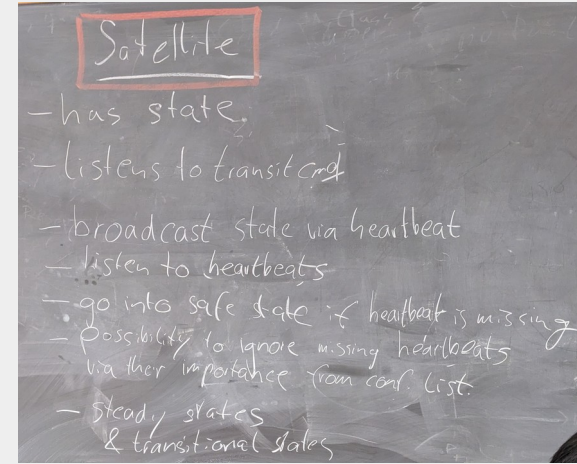 Satellite
- has state
- listens to transit cmd
- broadcast state via heartbeat
- listen to heartbeats
- go into safe state if heartbeat is missing
- possibility to ignore missing heartbeats
via their importance from conf. list.
- steady states
& transitional states